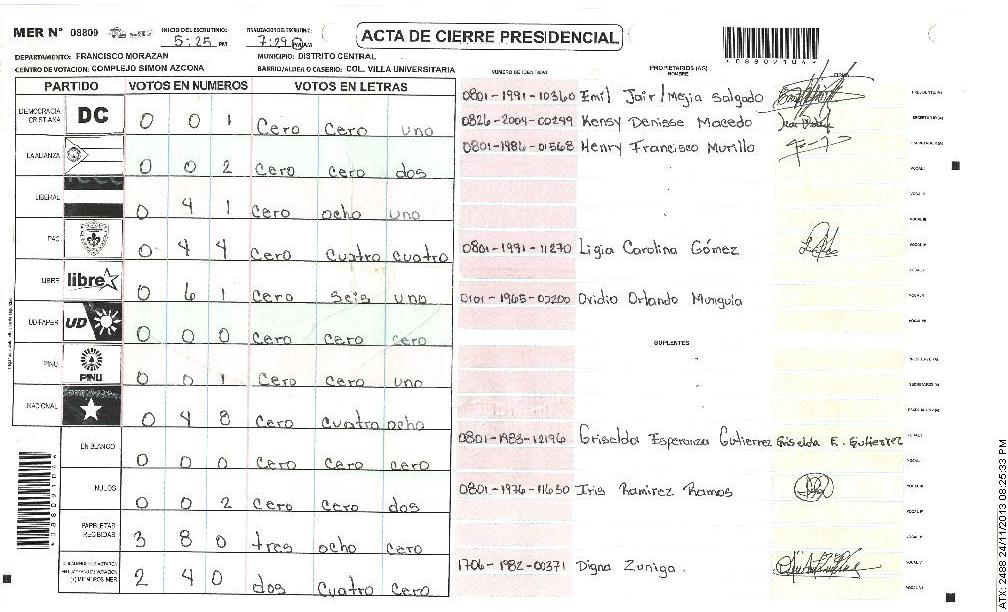 MER N° 08809
INICIO DEL ESCRUTINIO:
5:25 PM
FINALIZACION DEL ESCRUTINIO:
7:29
ACTA DE CIERRE PRESIDENCIAL
DEPARTAMENTO: FRANCISCO MORAZAN
MUNICIPIO: DISTRITO CENTRAL
CENTRO DE VOTACION: COMPLEJO SIMON AZCONA
BARRIO/ALDEA O CASERIO: COL. VILLA UNIVERSITARIA
PARTIDO VOTOS EN NUMEROS VOTOS EN LETRAS
DEMOCRACIA CRISTIANA DC 0 0 1 Cero Cero uno
LA ALIANZA 0 0 2 Cero cero dos
LIBERAL 0 8 1 Cero ocho uno
PAC 0 4 4 Cero cuatro cuatro
LIBRE libre 0 6 1 Cero seis uno
UD-FAPER UD 0 0 0 cero cero cero
PINU PINU 0 0 1 Cero cero uno
NACIONAL 0 4 8 Cero cuatro ocho
EN BLANCO 0 0 0 Cero cero cero
NULOS 0 0 2 Cero cero dos
PAPELETAS RECIBIDAS 3 8 0 tres ocho cero
2 4 0 dos cuatro cero
NUMERO DE IDENTIDAD
PROPIETARIOS (AS)
NOMBRE
FIRMA
0801-1991-10360 Emil Jair Mejia Salgado PRESIDENTE(A)
0826-2004-00249 Kensy Denisse Macedo SECRETARIO(A)
0801-1986-01568 Henry Francisco Murillo ESCRUTADOR(A)
VOCAL I
VOCAL II
VOCAL III
0801-1991-11270 Ligia Carolina Gómez VOCAL IV
VOCAL V
0101-1965-00200 Ovidio Orlando Munguia VOCAL VI
VOCAL VII
SUPLENTES
PRESIDENTE(A)
SECRETARIO(A)
ESCRUTADOR(A)
0801-1983-12196 Griselda Esperanza Gutierrez Griselda E. Gutierrez VOCAL I
VOCAL II
0801-1976-11630 Iris Ramirez Ramos VOCAL III
VOCAL IV
VOCAL V
1706-1982-00371 Digna Zuniga. VOCAL VI
VOCAL VII
ATX: 2488 24/11/2013 08:25:33 PM